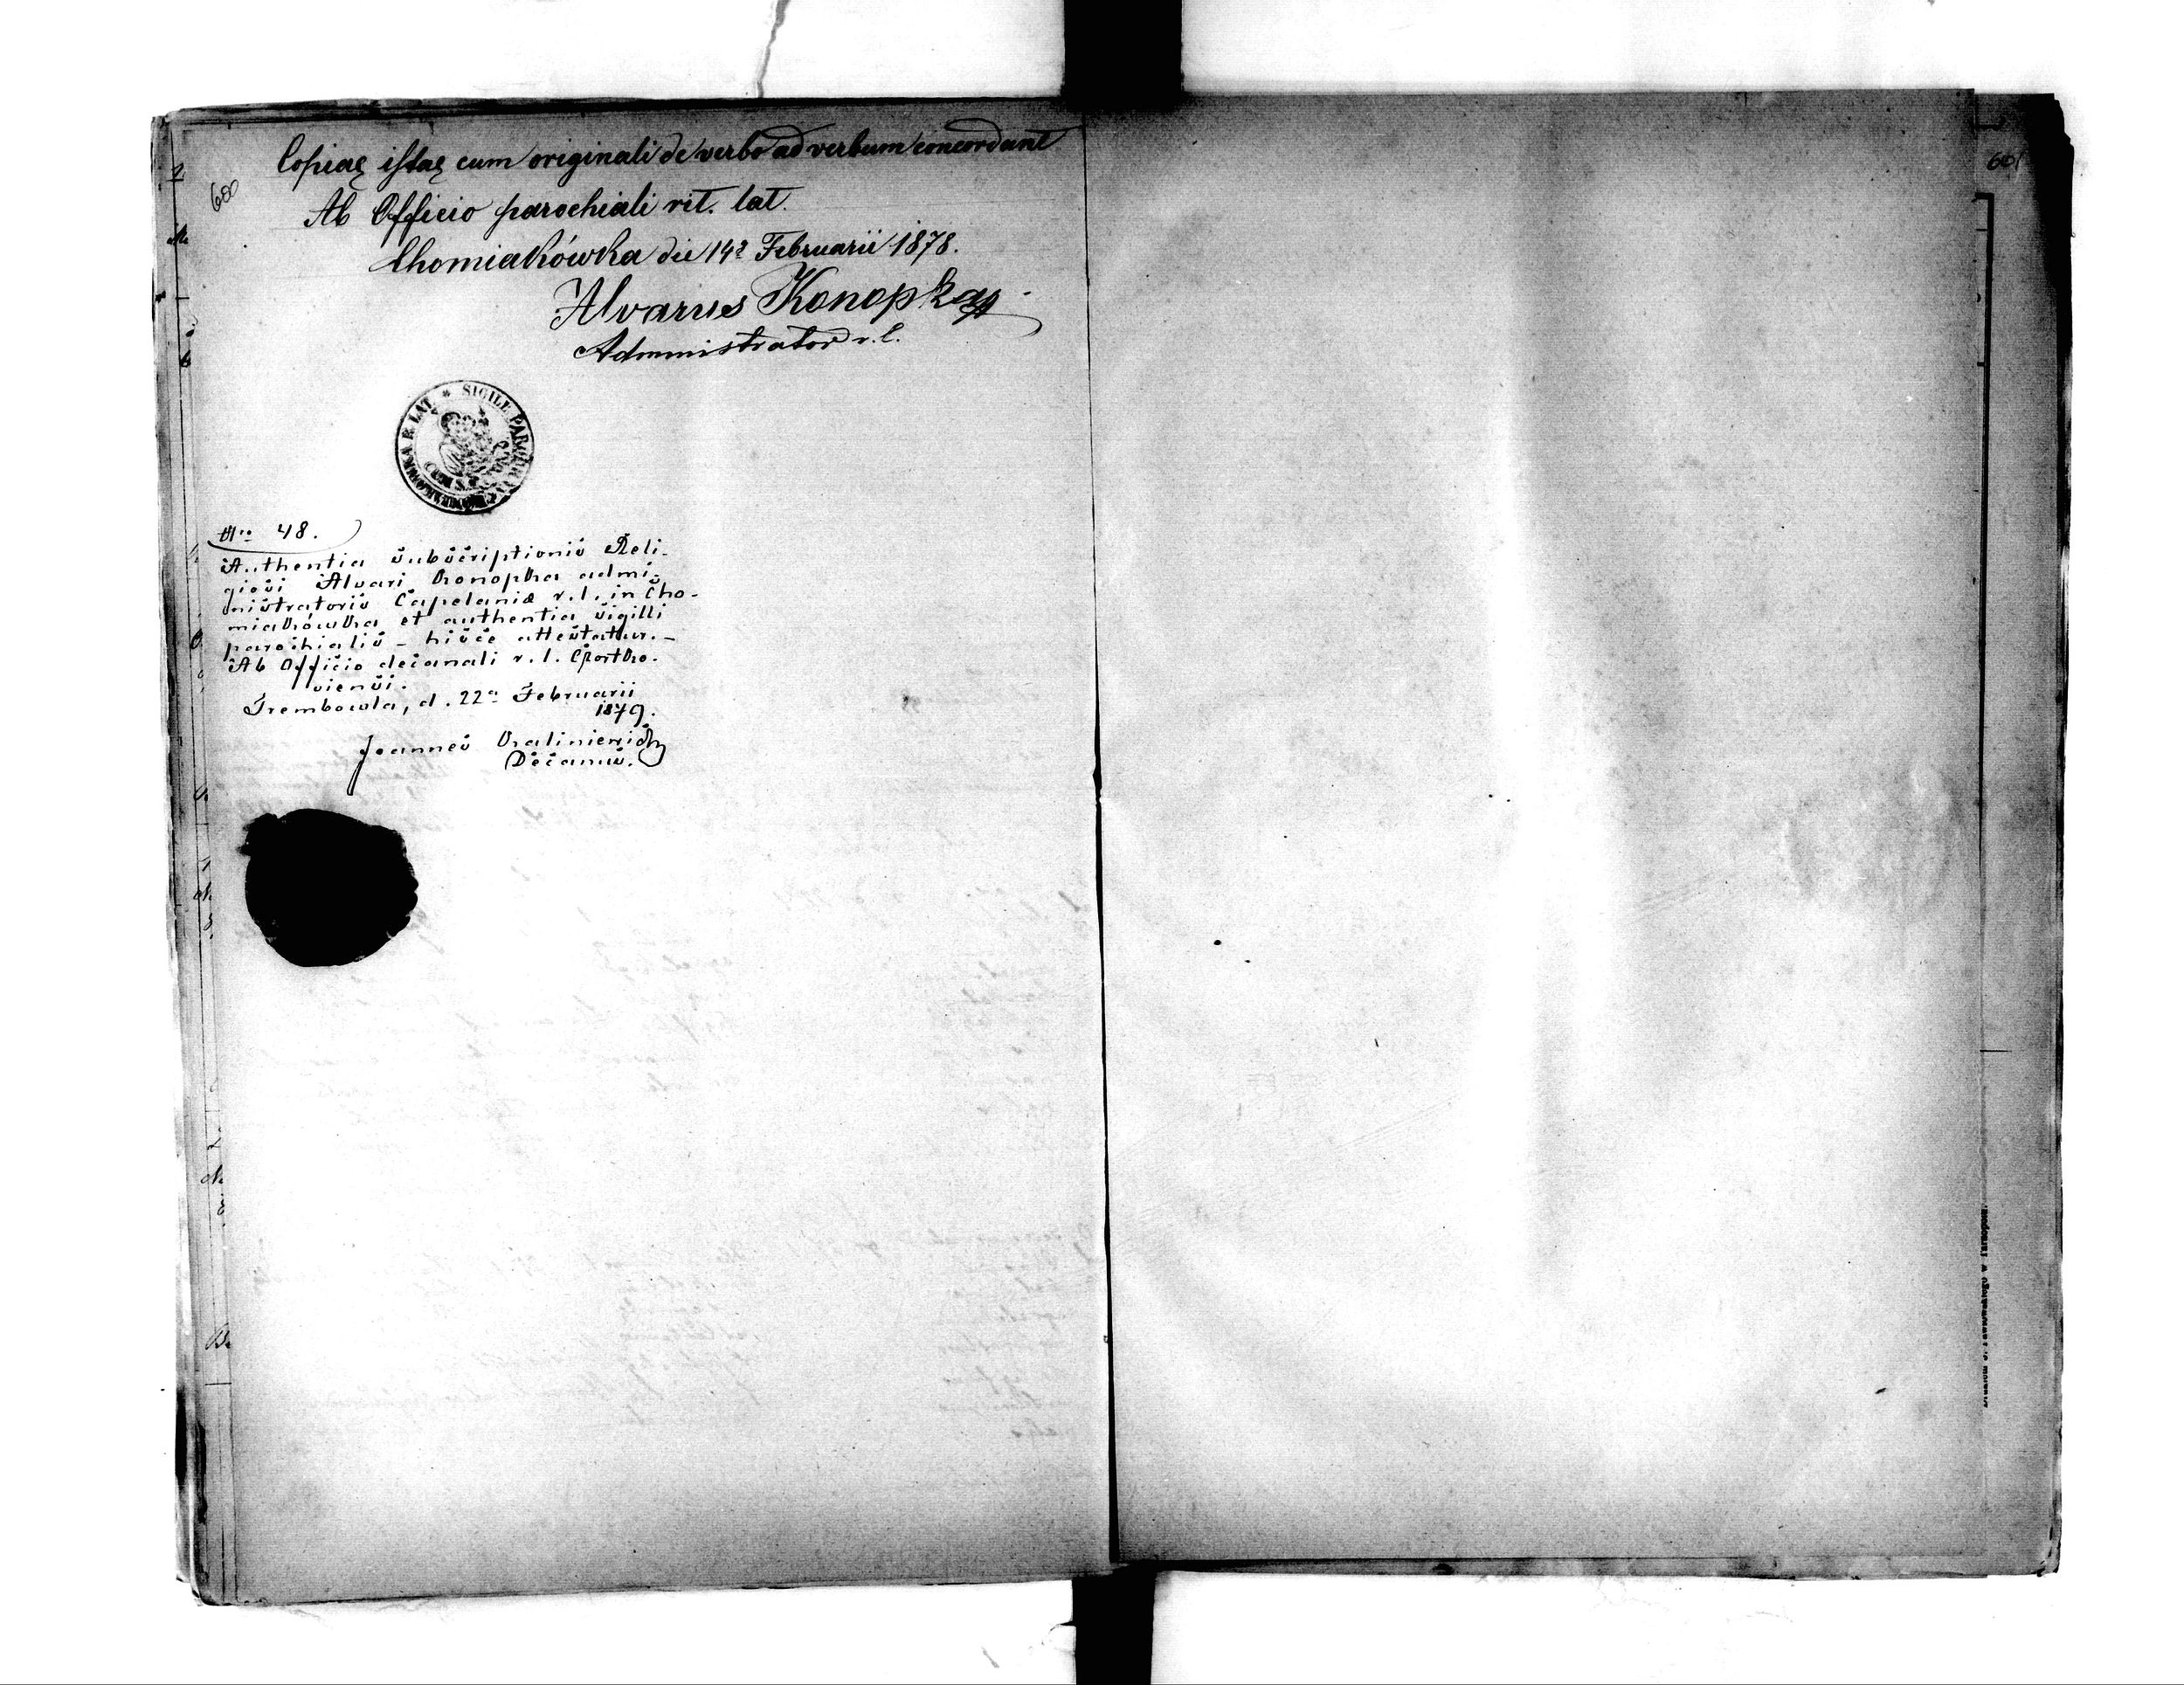 600
Copiaę istaę cum originali de verbo ad verbum concordant
Ab Officio parochiali rit. lat.
Chomiakówka die 14ª Februarii 1878.
Alvarus Konopka
Administrator r.l.
* SIGILL PAROCH
CHOMIAKOWKA R LAT.
Nro 48.
Authentia subscriptionis Reli-
giosi Alvari Konopka admi-
nistratoris Capelaniæ r.l. in Cho-
miakówka et authentia sigilli
parochialis – hisce attestatur. –
Ab Officio decanali r.l.
viensi.
Trembowla, d. 22ª Februarii
1879.
Joannes Kaliniewicz
Decanus.
601
w Tarnopolu.